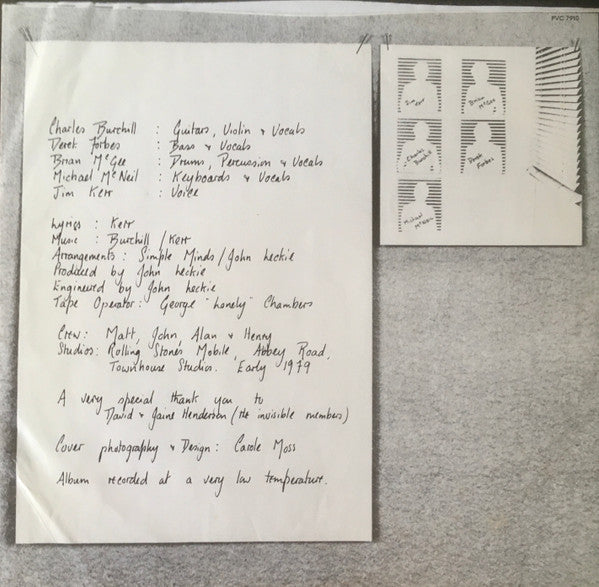 PVC 7910
Charles Burchill : Guitars, Violin + Vocals
Derek Forbes : Bass + Vocals
Brian McGee : Drums, Percussion + Vocals
Michael McNeil : Keyboards + Vocals
Jim Kerr : Voice
Lyrics : Kerr
Music : Burchill / Kerr
Arrangements : Simple Minds / John Leckie
Produced by John Leckie
Engineered by John Leckie
Tape Operator : George "Lonely" Chambers
Crew : Matt, John, Alan + Henry
Studios : Rolling Stones Mobile, Abbey Road,
Townhouse Studios. Early 1979
A very special thank you to
David + Jaine Henderson (the invisible members)
Cover photography + Design : Carole Moss
Album recorded at a very low temperature.
Jim Kerr
Brian McGee
Charles Burchill
Derek Forbes
Michael McNeil